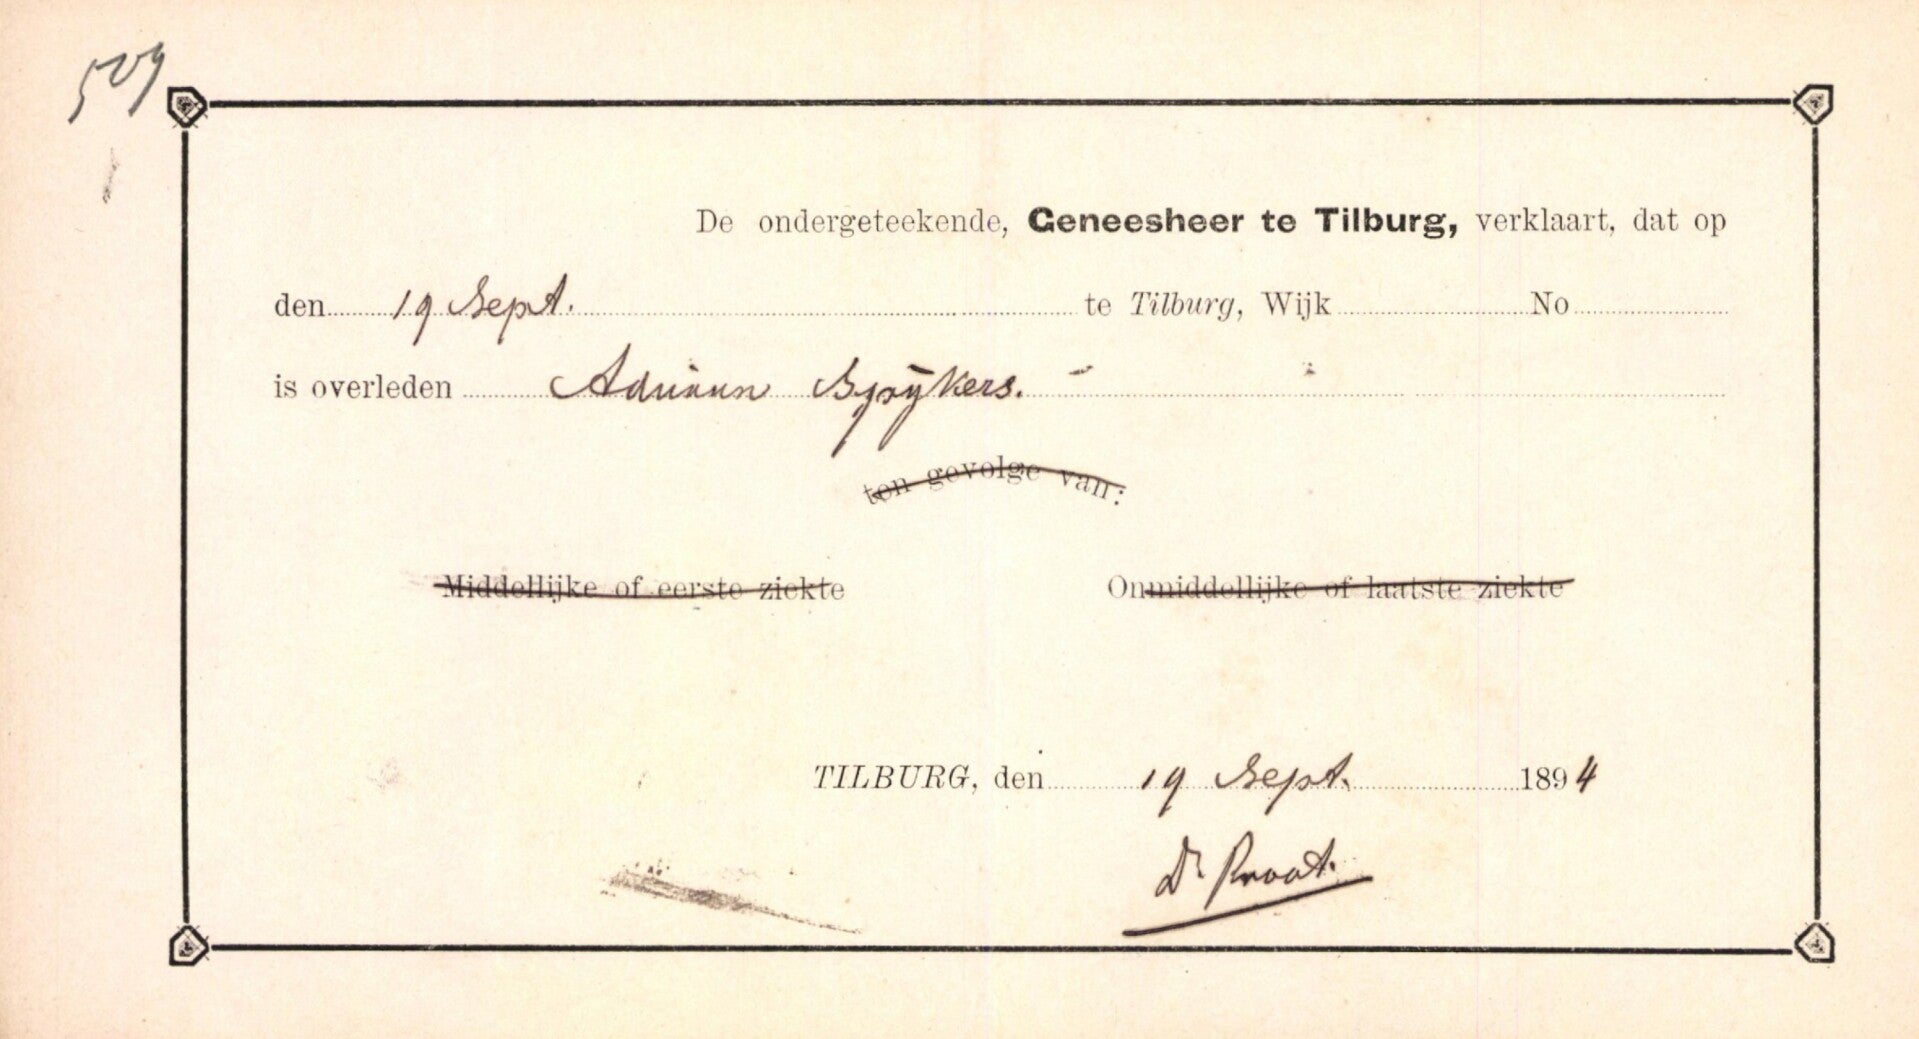 509
De ondergeteekende, Geneesheer te Tilburg, verklaart, dat op
den 19 Sept. te Tilburg, Wijk No
is overleden Adriaan Spijkers.
ten gevolge van:
Middellijke of eerste ziekte Onmiddellijke of laatste ziekte
TILBURG, den 19 Sept. 1894
Dr Proot.